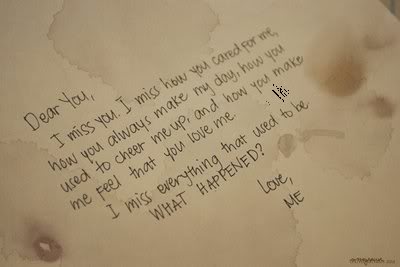 Dear You,
I miss you. I miss how you cared for me,
how you always make my day, how you
used to cheer me up, and how you make
me feel that you love me.
I miss everything that used to be
WHAT HAPPENED?
Love,
ME